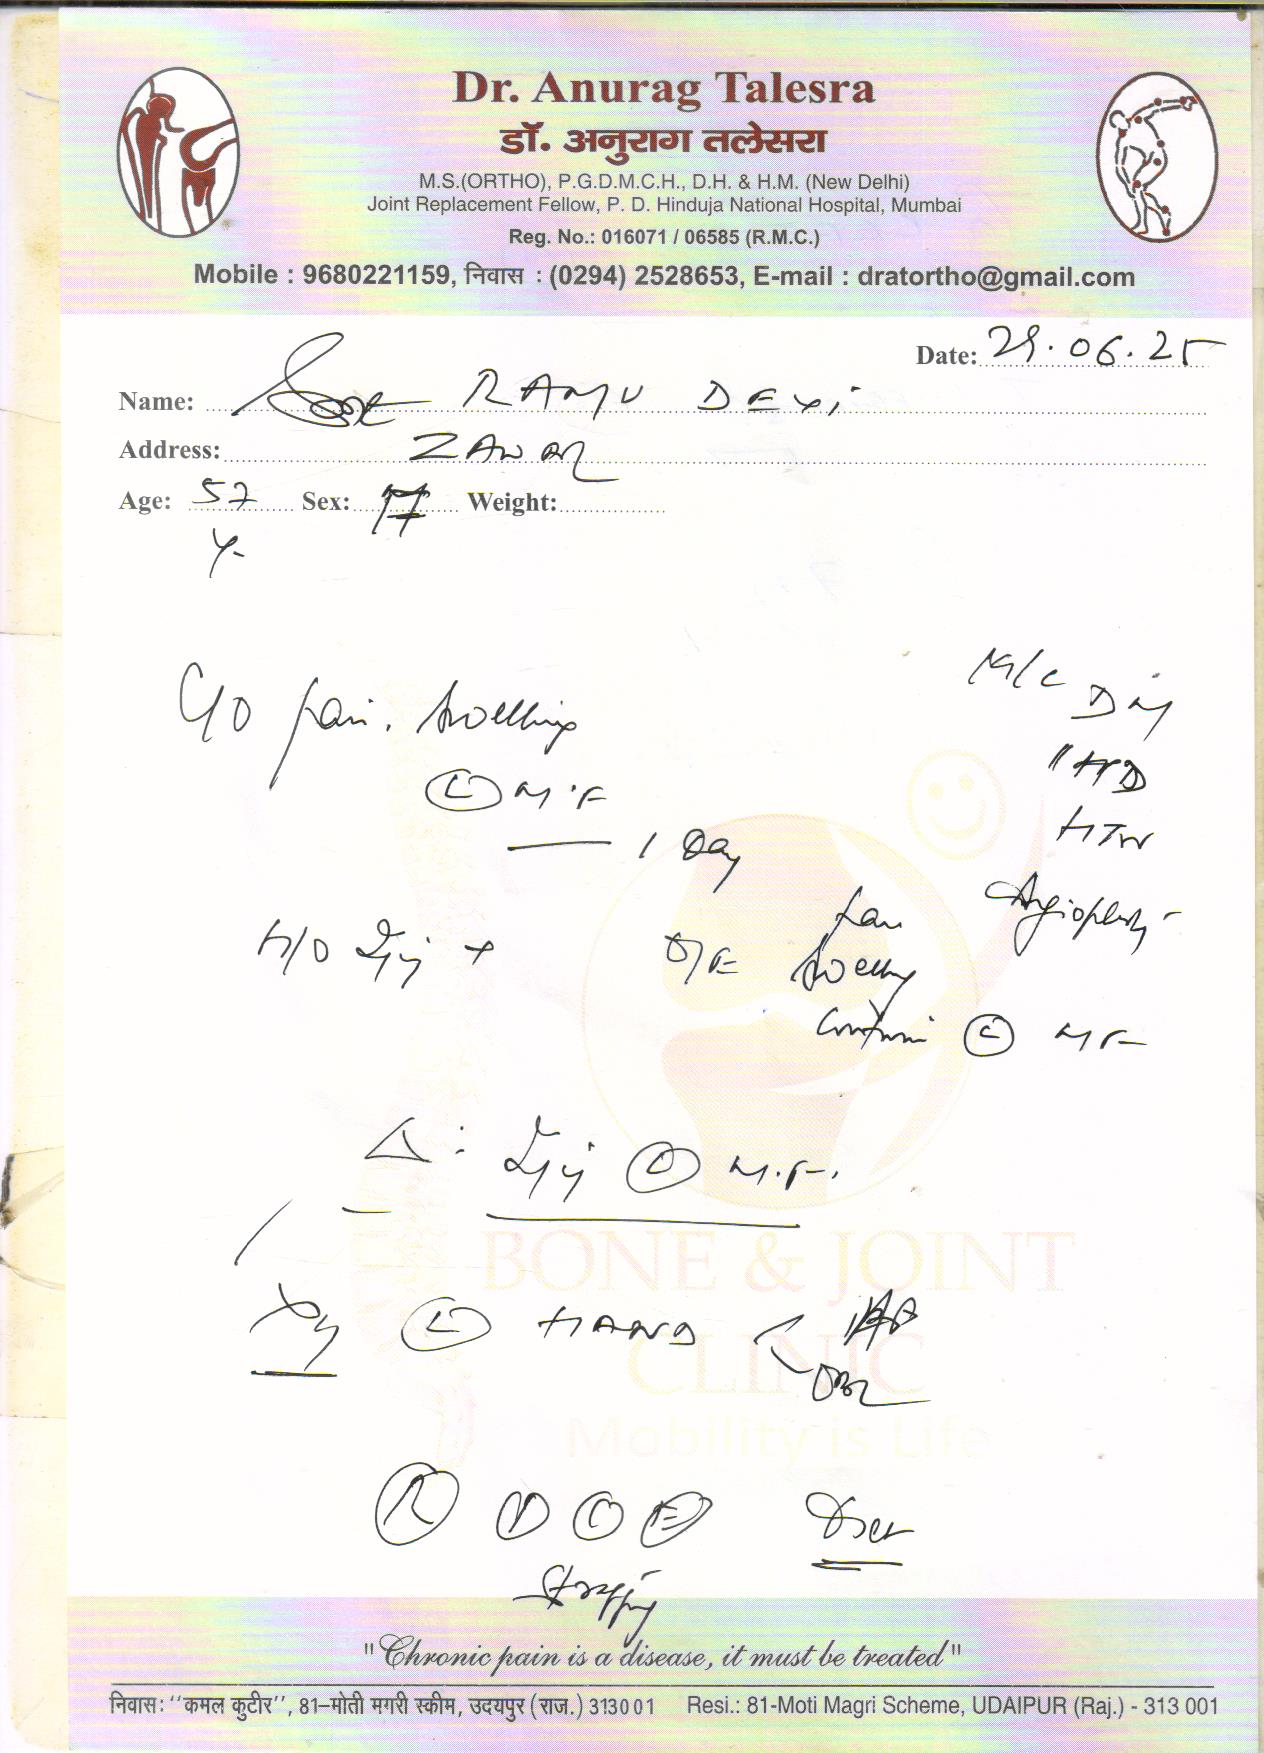 Dr. Anurag Talesra
डॉ. अनुराग तलेसरा
M.S.(ORTHO), P.G.D.M.C.H., D.H. & H.M. (New Delhi)
Joint Replacement Fellow, P. D. Hinduja National Hospital, Mumbai
Reg. No.: 016071 / 06585 (R.M.C.)
Mobile : 9680221159, निवास : (0294) 2528653, E-mail : dratortho@gmail.com
Date: 29.06.25
Name: RAMU DEVI
Address: ZAWAR
Age: 57 Sex: F Weight:
Y
K/C
C/O Pain. Swelling
DM
IHD
(L) M.F
HTN
1 Day
Angioplasty
Pain
H/O Inj + O/E Swelling
(L) MF
Δ: Inj (L) M.F.
BONE & JOINT
CLINIC
Mobility is Life
Xy (L) HAND < AP
OBL
(R) (I) (C) (E)
Strapping
"Chronic pain is a disease, it must be treated"
निवास: ‘‘कमल कुटीर’’, 81–मोती मगरी स्कीम, उदयपुर (राज.) 313001 Resi.: 81-Moti Magri Scheme, UDAIPUR (Raj.) - 313 001